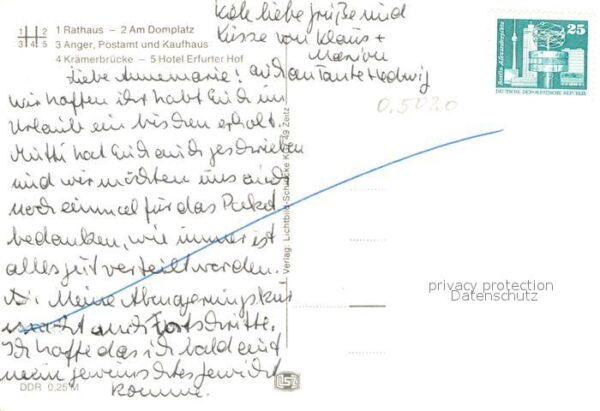 1 Rathaus – 2 Am Domplatz
3 Anger, Postamt und Kaufhaus
4 Krämerbrücke – 5 Hotel Erfurter Hof
liebe Grüße und
Küsse von Klaus +
Marion
auch an Tante Hedwig
Liebe Annemarie!
wir hoffen ihr habt Euch im
Urlaub ein bischen erholt.
Mutti hat Euch auch geschrieben
und wir möchten uns auch
noch einmal für das Paket
bedanken, wie immer ist
alles gut verteilt worden.
Meine Abmagerungskur
macht auch Fortschritte.
Ich hoffe das ich bald auf
mein gewünschtes Gewicht
komme.
DDR 0,25 M
Verlag: Lichtbild-Schincke KG, 49 Zeitz
LSZ
25
Berlin, Alexanderplatz
DEUTSCHE DEMOKRATISCHE REPUBLIK
0.5020
privacy protection
Datenschutz